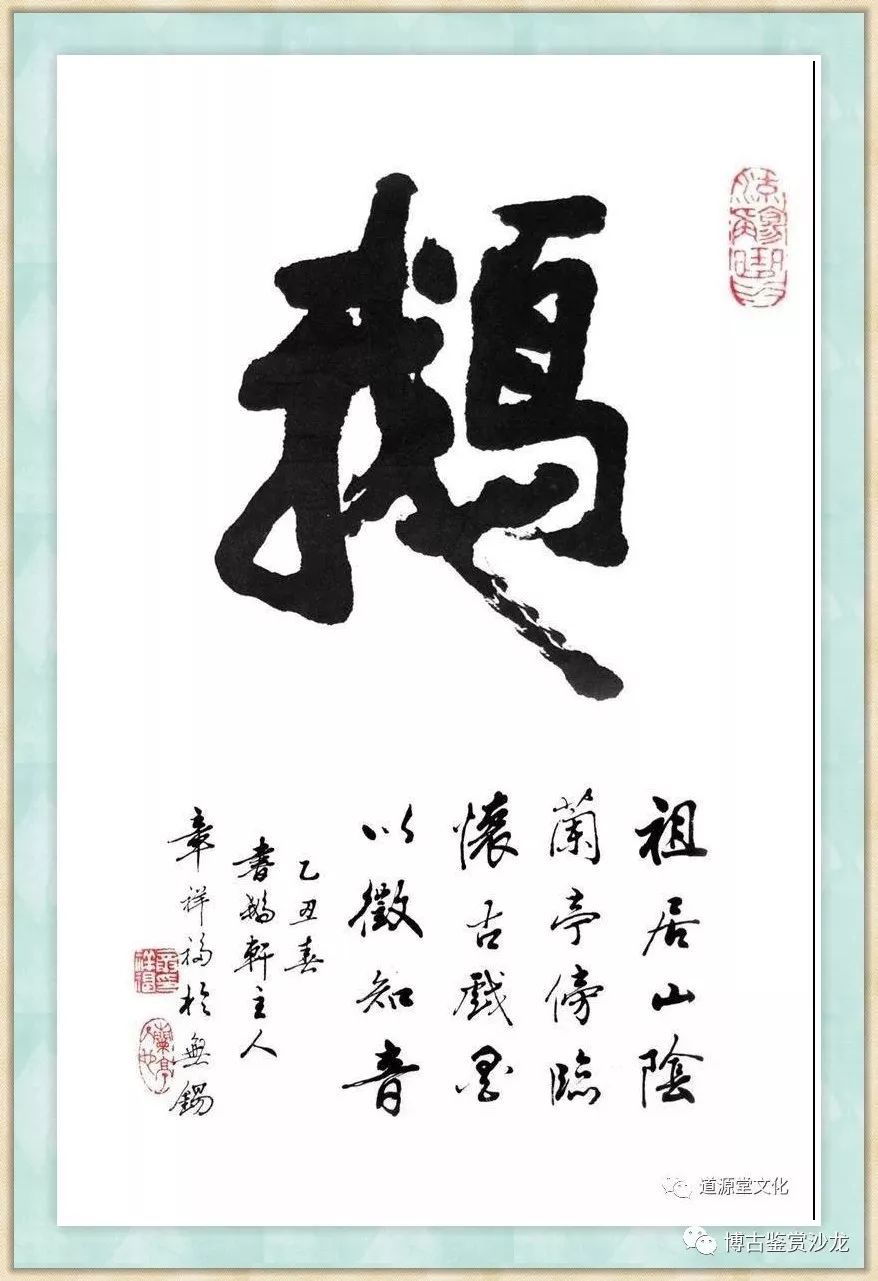 鵝
祖居山陰
蘭亭傍臨
懷古戲墨
以徵知音
乙丑春
書鵝軒主人
章祥福於無錫
蘭亭
道源堂文化
博古鉴赏沙龙